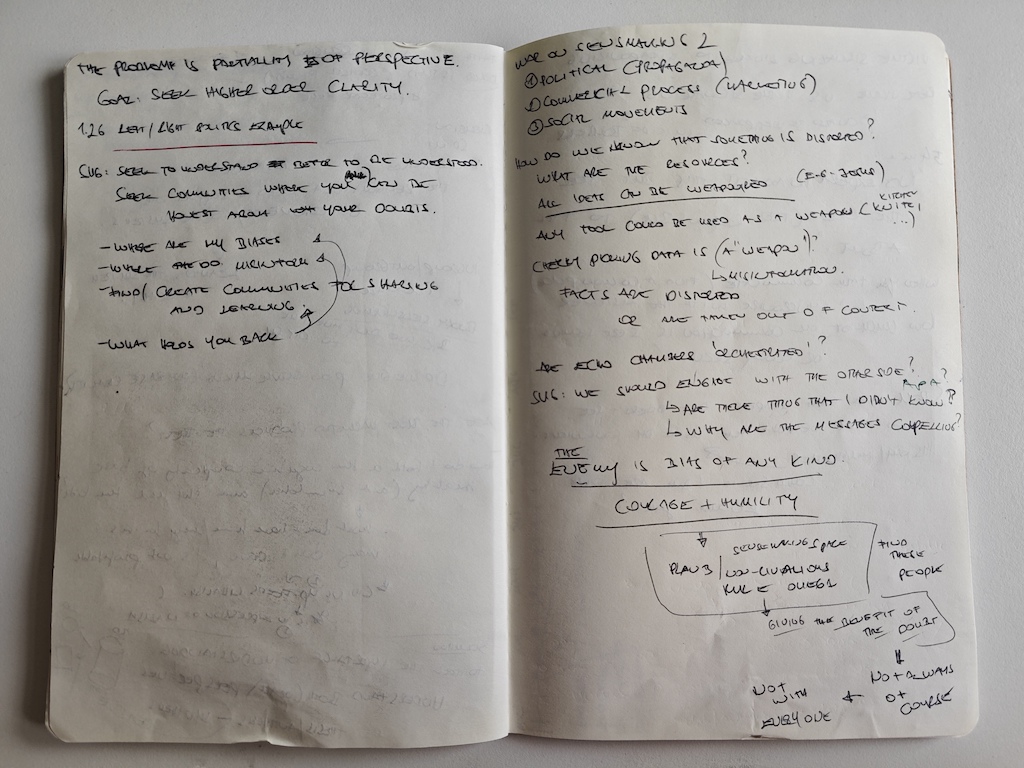 THE PROBLEM IS PARTIALITY OF PERSPECTIVE.
GOAL: SEEK HIGHER ORDER CLARITY.
1.26 LEFT/RIGHT POLITICS EXAMPLE
SUG: SEEK TO UNDERSTAND BETTER TO BE UNDERSTOOD.
SEEK COMMUNITIES WHERE YOU CAN BE
HONEST ABOUT YOUR DOUBTS.
- WHERE ARE MY BIASES
- WHERE DO
- FIND/CREATE COMMUNITIES FOR SHARING
AND LEARNING.
- WHAT HOLDS YOU BACK
WAR ON SENSMAKING 2
① POLITICAL (PROPAGANDA)
② COMMERCIAL PROCESS (MARKETING)
③ SOCIAL MOVEMENTS
HOW DO WE KNOW THAT SOMETHING IS DISTORTED?
WHAT ARE THE RESOURCES?
ALL IDEAS CAN BE WEAPONIZED (E.G. JESUS)
ANY TOOL COULD BE USED AS A WEAPON (KITCHEN KNIFE, ...)
CHERRY PICKING DATA IS (A "WEAPON")?
↳ MISINFORMATION.
FACTS ARE DISTORTED
OR ARE TAKEN OUT OF CONTEXT.
ARE ECHO CHAMBERS 'ORCHESTRATED'?
SUG: WE SHOULD ENGAGE WITH THE OTHER SIDE?
↳ ARE THERE THINGS THAT I DIDN'T KNOW?
↳ WHY ARE THE MESSAGES COMPELLING?
THE
ENEMY IS BIAS OF ANY KIND.
COURAGE + HUMILITY
SENSEMAKING SPACE
PLAN B / NON-
RULE OMEGA
FIND
THESE
PEOPLE
GIVING THE BENEFIT OF
THE DOUBT
NOT ALWAYS
OF
COURSE
+
NOT
WITH
EVERYONE